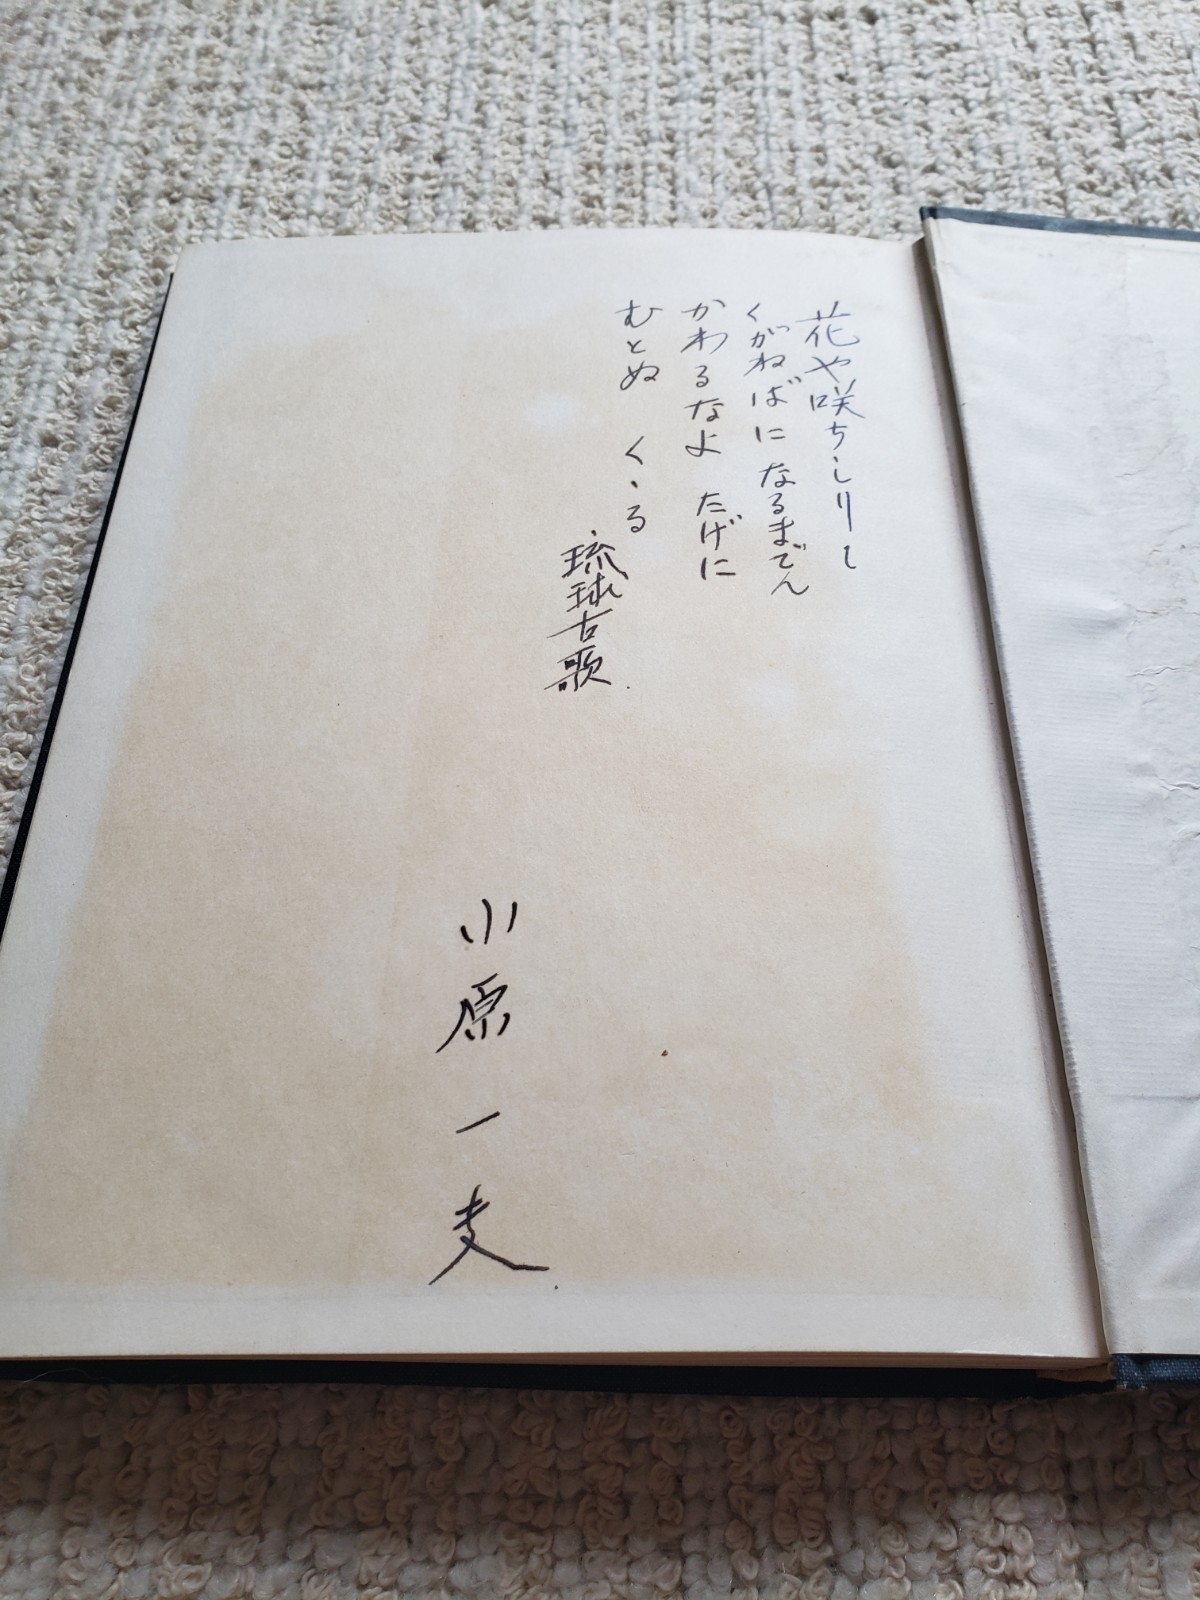 花や咲ちしりて
くがねばに なるまでん
かわるなよ たげに
むとぬ くゝる
琉球古歌
小原一夫